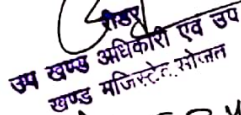 रीडर
उप खण्ड अधिकारी एवं उप
खण्ड मजिस्ट्रेट सोजत